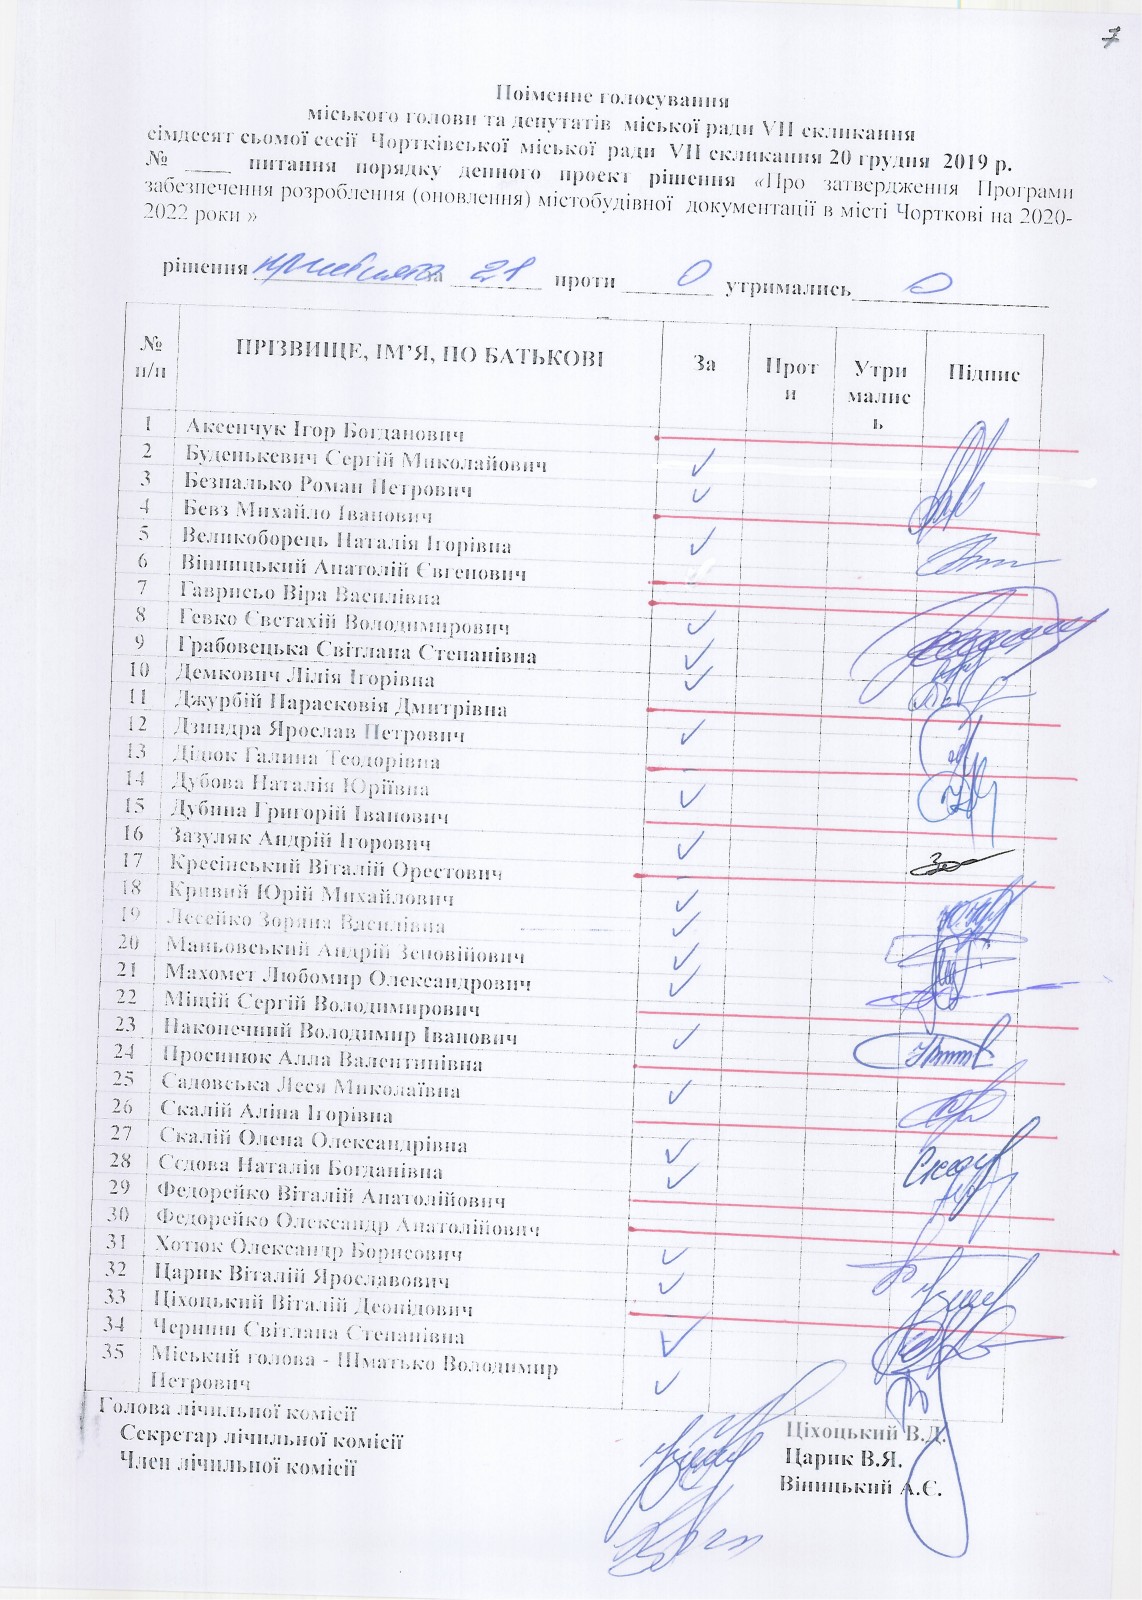 7
Поіменне голосування
міського голови та депутатів міської ради VII скликання
сімдесят сьомої сесії Чортківської міської ради VII скликання 20 грудня 2019 р.
№ ____ питання порядку денного проект рішення «Про затвердження Програми
забезпечення розроблення (оновлення) містобудівної документації в місті Чорткові на 2020-
2022 роки »
рішення прийнято за 21 проти 0 утримались 0
№ п/п ПРІЗВИЩЕ, ІМ’Я, ПО БАТЬКОВІ За Проти Утримались Підпис
1 Аксенчук Ігор Богданович
2 Буденькевич Сергій Миколайович ✓
3 Безпалько Роман Петрович ✓
4 Бевз Михайло Іванович
5 Великоборець Наталія Ігорівна ✓
6 Вінницький Анатолій Євгенович
7 Гаврисьо Віра Василівна
8 Гевко Євстахій Володимирович ✓
9 Грабовецька Світлана Степанівна ✓
10 Демкович Лілія Ігорівна ✓
11 Джурбій Парасковія Дмитрівна
12 Дзиндра Ярослав Петрович ✓
13 Дідюк Галина Теодорівна
14 Дубова Наталія Юріївна ✓
15 Дубина Григорій Іванович
16 Зазуляк Андрій Ігорович ✓
17 Кресінський Віталій Орестович
18 Кривий Юрій Михайлович ✓
19 Лесейко Зоряна Василівна ✓
20 Маньовський Андрій Зеновійович ✓
21 Махомет Любомир Олександрович ✓
22 Міщій Сергій Володимирович
23 Наконечний Володимир Іванович ✓
24 Просинюк Алла Валентинівна
25 Садовська Леся Миколаївна ✓
26 Скалій Аліна Ігорівна
27 Скалій Олена Олександрівна ✓
28 Сєдова Наталія Богданівна ✓
29 Федорейко Віталій Анатолійович
30 Федорейко Олександр Анатолійович
31 Хотюк Олександр Борисович ✓
32 Царик Віталій Ярославович ✓
33 Ціхоцький Віталій Леонідович
34 Черниш Світлана Степанівна ✓
35 Міський голова - Шматько Володимир
Петрович ✓
Голова лічильної комісії Ціхоцький В.Л.
Секретар лічильної комісії Царик В.Я.
Член лічильної комісії Віницький А.Є.